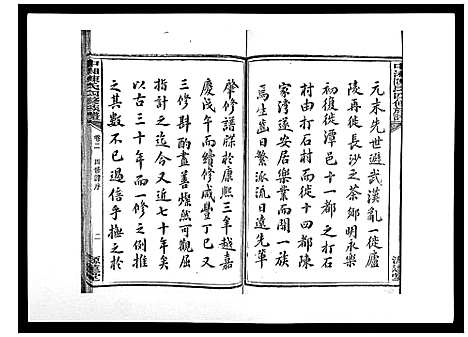 元末先世避武漢亂一徙廬
陵再徙長沙之茶鄉明永樂
初復徙潭邑十一都之打石
村由打石村而徙十四都陳
家灣遂安居樂業而開一族
焉生齒日繁派流日遠先輩
肇修譜牒於康熙三年越嘉
慶戊午而續修咸豐丁巳又
三修斟酌盡善燦然可觀屈
指計之迄今又近七十年矣
以古三十年而一修之例推
之其不已過信乎撫之於
中湘陳氏四修族譜
卷二 四修譜序
二